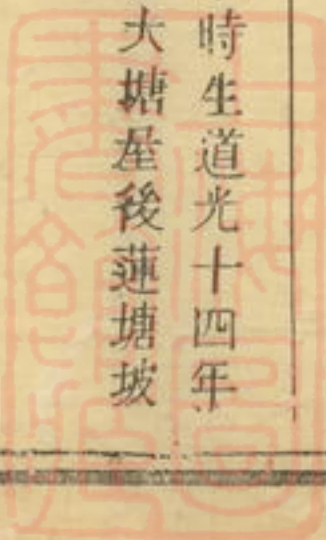 時生道光十四年
大塘屋後蓮塘坡